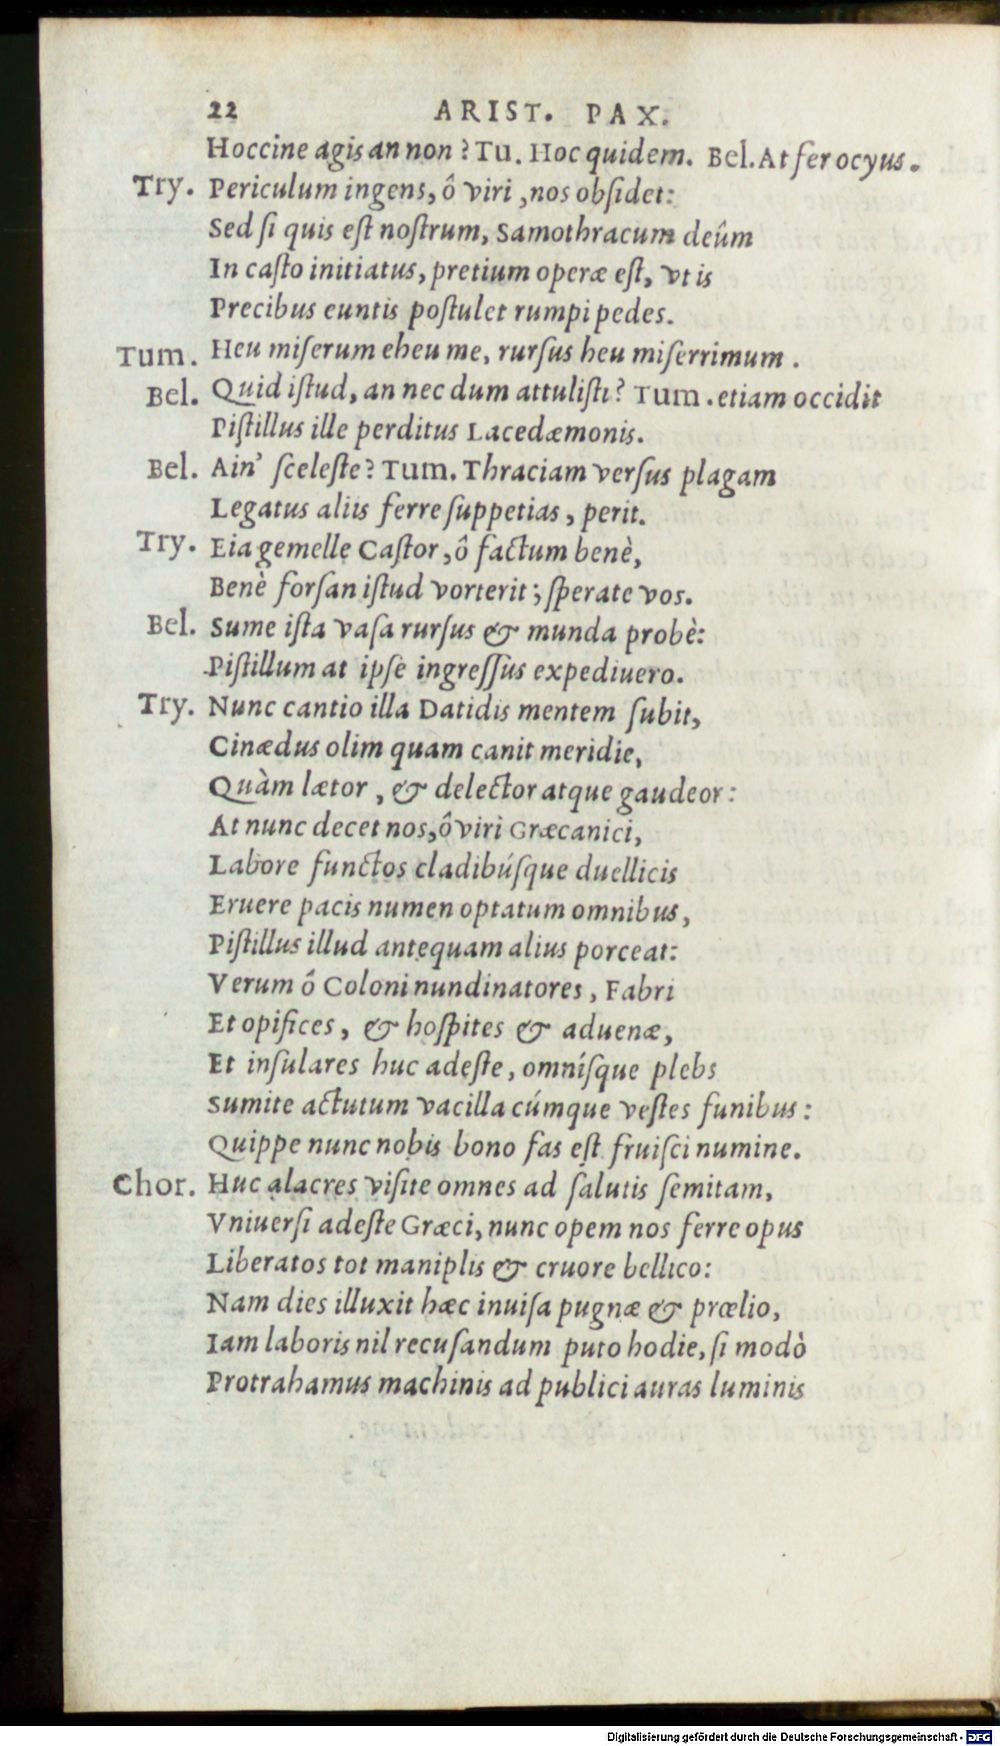 22 ARIST. PAX.
Hoccine agis an non? Tu. Hoc quidem. Bel. At fer ocyus.
Try. Periculum ingens, ô viri, nos obſidet:
Sed ſi quis eſt noſtrum, Samothracum deûm
In caſto initiatus, pretium operæ eſt, vt is
Precibus euntis poſtulet rumpi pedes.
Tum. Heu miſerum eheu me, rurſus heu miſerrimum.
Bel. Quid iſtud, an nec dum attuliſti? Tum. etiam occidit
Piſtillus ille perditus Lacedæmonis.
Bel. Ain' ſceleſte? Tum. Thraciam verſus plagam
Legatus aliis ferre ſuppetias, perit.
Try. Eia gemelle Caſtor, ô factum benè,
Benè forſan iſtud vorterit; ſperate vos.
Bel. Sume iſta vaſa rurſus & munda probè:
Piſtillum at ipſe ingreſſus expediuero.
Try. Nunc cantio illa Datidis mentem ſubit,
Cinædus olim quam canit meridie,
Quàm lætor, & delector atque gaudeor:
At nunc decet nos, ô viri Græcanici,
Labore functos cladibúſque duellicis
Eruere pacis numen optatum omnibus,
Piſtillus illud antequam alius porceat:
Verum ô Coloni nundinatores, Fabri
Et opifices, & hoſpites & aduenæ,
Et inſulares huc adeſte, omníſque plebs
Sumite actutum vacilla cúmque veſtes funibus:
Quippe nunc nobis bono fas eſt fruiſci numine.
Chor. Huc alacres viſite omnes ad ſalutis ſemitam,
Vniuerſi adeſte Græci, nunc opem nos ferre opus
Liberatos tot maniplis & cruore bellico:
Nam dies illuxit hæc inuiſa pugnæ & prœlio,
Iam laboris nil recuſandum puto hodie, ſi modò
Protrahamus machinis ad publici auras luminis
Digitalisierung gefördert durch die Deutsche Forschungsgemeinschaft - DFG